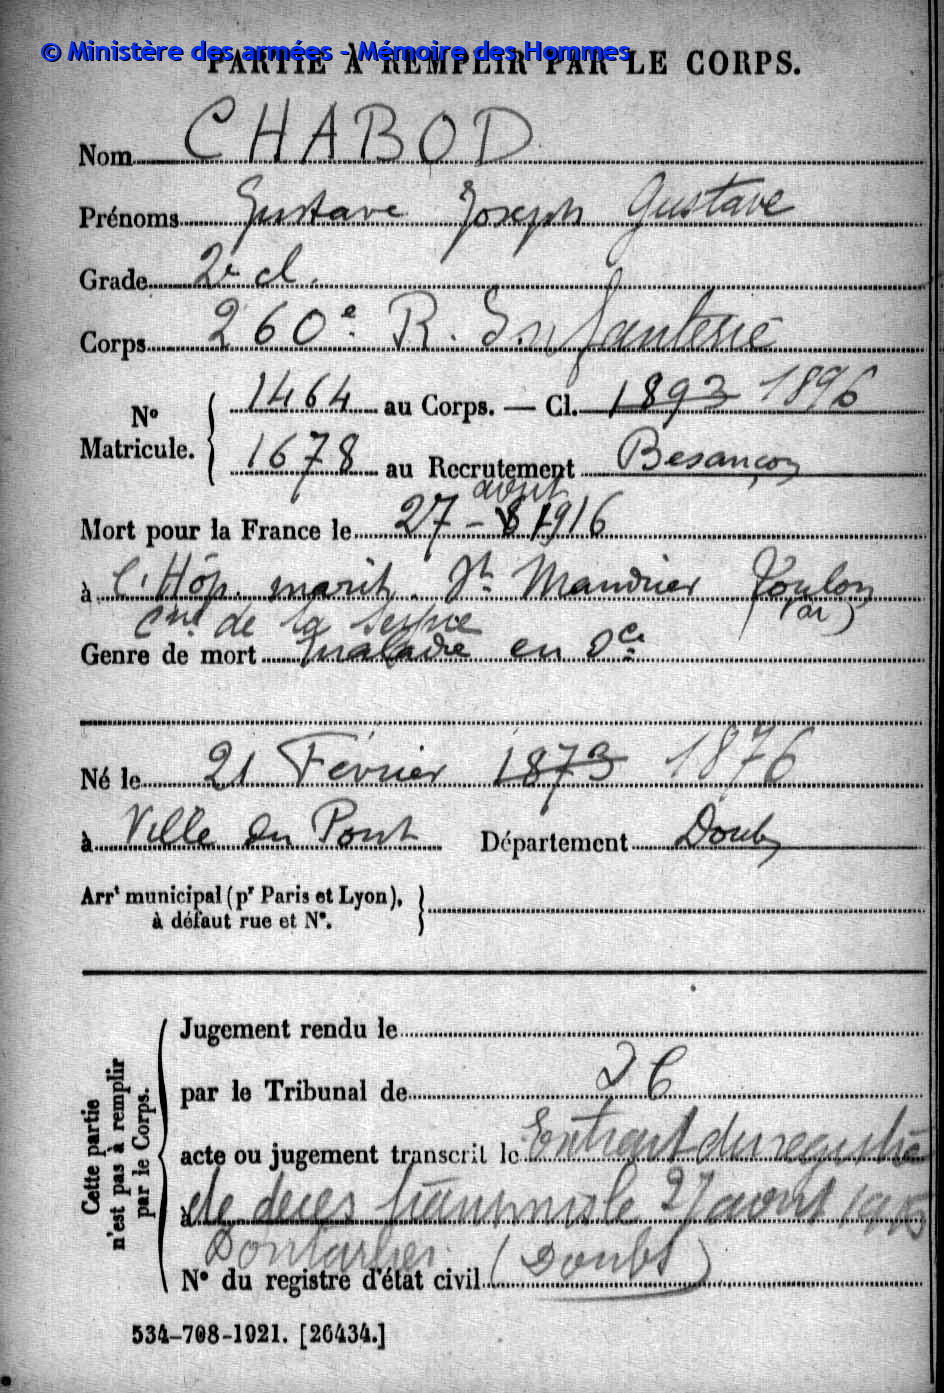 © Ministère des armées - Mémoire des Hommes
PARTIE À REMPLIR PAR LE CORPS.
Nom CHABOD
Prénoms Gustave Joseph Gustave
Grade 2e cl.
Corps 260e R. Infanterie
N° Matricule. 1464 au Corps. — Cl. 1893 1896
1678 au Recrutement Besançon
avril
Mort pour la France le 27 - 8 1916
à l'Hôp. marit. St Mandrier Toulon
cne de la Seyne (Var)
Genre de mort maladie en Sce
Né le 21 Février 1873 1876
à Ville du Pont Département Doubs
Arrt municipal (pr Paris et Lyon),
à défaut rue et N°.
Cette partie
n'est pas à remplir
par le Corps.
Jugement rendu le
par le Tribunal de
acte ou jugement transcrit le Extrait du registre
à de décès transmis le 27 avril
Pontarlier (Doubs)
N° du registre d'état civil
534-708-1921. [26434.]